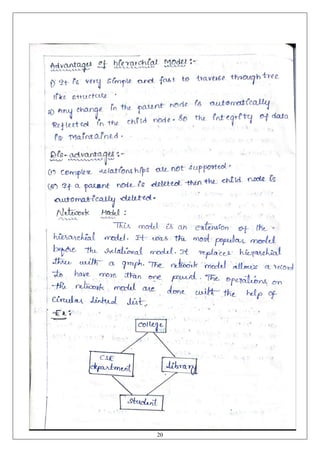 Advantages of hierarchial Model :-
1) It is very simple and fast to traverse through tree
like structure.
2) Any change in the parent node is automatically
Reflected in the child node. So the integrity of data
is maintained.
Dis-advantages :-
(1) Complex relationships are not supported.
(2) If a parent node is deleted then the child node is
automatically deleted.
Network Model :
This model is an extension of the
hierarchial model. It was the most popular model
before the relational model. It replaces hierarchial
tree with a graph. The network model allows a record
to have more than one parent. The operations on
the network model are done with the help of
circular linked list.
Ex :
College
CSE
department
Library
Student
20